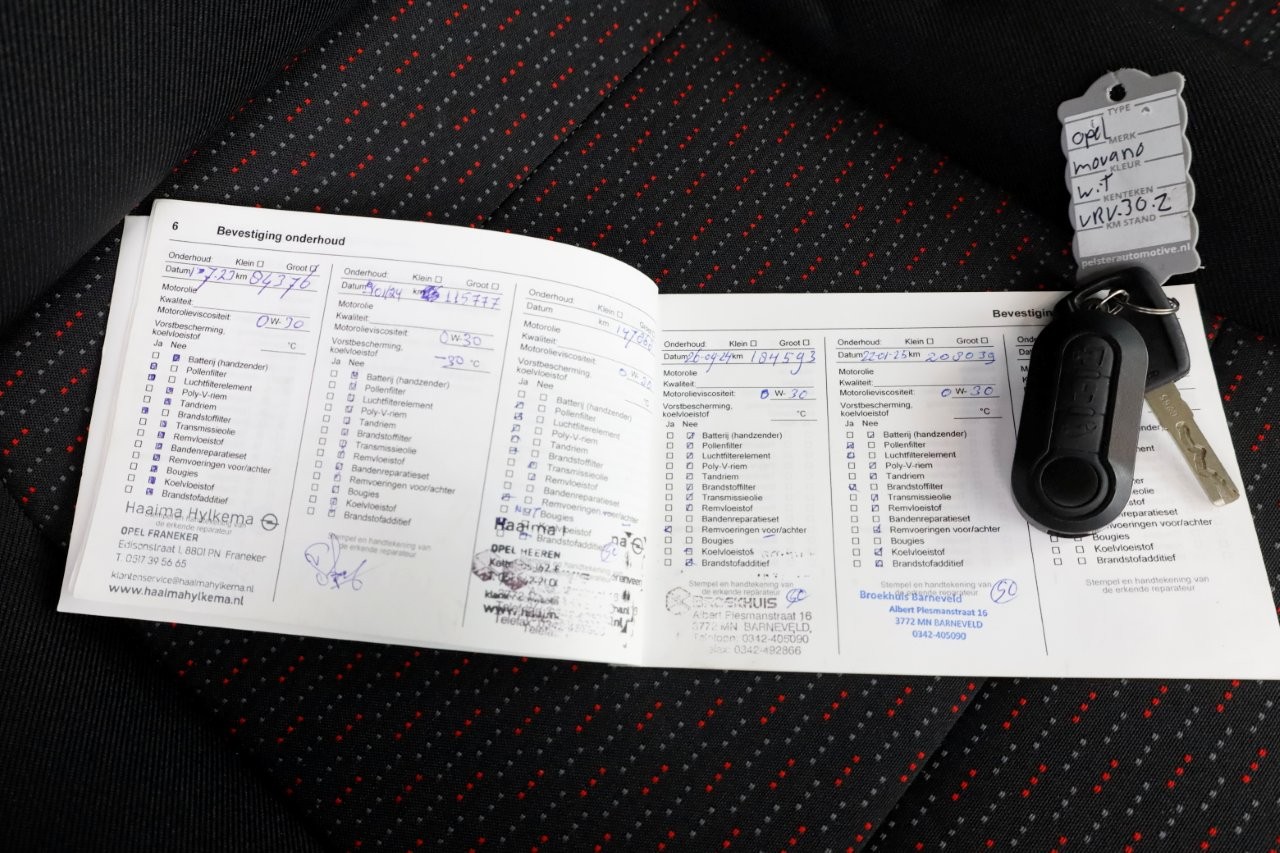 6 Bevestiging onderhoud
Onderhoud: Klein Groot
km 84376
Motorolie
Kwaliteit:
Motorolieviscositeit: 0 W- 30
Vorstbescherming, koelvloeistof °C
Ja Nee
Batterij (handzender)
Pollenfilter
Luchtfilterelement
Poly-V-riem
Tandriem
Brandstoffilter
Transmissieolie
Remvloeistof
Bandenreparatieset
Remvoeringen voor/achter
Bougies
Koelvloeistof
Brandstofadditief
Haaima Hylkema
de erkende reparateur
OPEL FRANEKER
Edisonstraat 1, 8801 PN Franeker
T. 0317 39 56 65
klantenservice@haaimahylkema.nl
www.haaimahylkema.nl
Onderhoud: Klein Groot
Datum km 115777
Motorolie
Kwaliteit:
Motorolieviscositeit: 0 W- 30
Vorstbescherming, koelvloeistof -30 °C
Ja Nee
Batterij (handzender)
Pollenfilter
Luchtfilterelement
Poly-V-riem
Tandriem
Brandstoffilter
Transmissieolie
Remvloeistof
Bandenreparatieset
Remvoeringen voor/achter
Bougies
Koelvloeistof
Brandstofadditief
Stempel en handtekening van
de erkende reparateur
Onderhoud: Klein
Datum km
Motorolie
Kwaliteit:
Motorolieviscositeit:
Vorstbescherming, koelvloeistof
Ja Nee
Batterij (handzender)
Pollenfilter
Luchtfilterelement
Poly-V-riem
Tandriem
Brandstoffilter
Transmissieolie
Remvloeistof
Bandenreparatieset
Remvoeringen voor/achter
Bougies
Brandstofadditief
OPEL HEEREN
Onderhoud: Klein Groot
Datum 26-04-24 km 184593
Motorolie
Kwaliteit:
Motorolieviscositeit: 0 W- 30
Vorstbescherming, koelvloeistof °C
Ja Nee
Batterij (handzender)
Pollenfilter
Luchtfilterelement
Poly-V-riem
Tandriem
Brandstoffilter
Transmissieolie
Remvloeistof
Bandenreparatieset
Remvoeringen voor/achter
Bougies
Koelvloeistof
Brandstofadditief
Stempel en handtekening van
de erkende reparateur
BROEKHUIS
Albert Plesmanstraat 16
3772 MN BARNEVELD,
Telefoon: 0342-405090
Fax: 0342-492866
Onderhoud: Klein Groot
Datum 22-01-25 km 208039
Motorolie
Kwaliteit:
Motorolieviscositeit: 0 W- 30
Vorstbescherming, koelvloeistof °C
Ja Nee
Batterij (handzender)
Pollenfilter
Luchtfilterelement
Poly-V-riem
Tandriem
Brandstoffilter
Transmissieolie
Remvloeistof
Bandenreparatieset
Remvoeringen voor/achter
Bougies
Koelvloeistof
Brandstofadditief
Stempel en handtekening van
de erkende reparateur
Broekhuis Barneveld
Albert Plesmanstraat 16
3772 MN BARNEVELD
0342-405090
Bougies
Koelvloeistof
Brandstofadditief
Stempel en handtekening van
de erkende reparateur
TYPE
opel
MERK
movano
KLEUR
w.t
KENTEKEN
VRV.30.Z
KM STAND
pelsterautomotive.nl